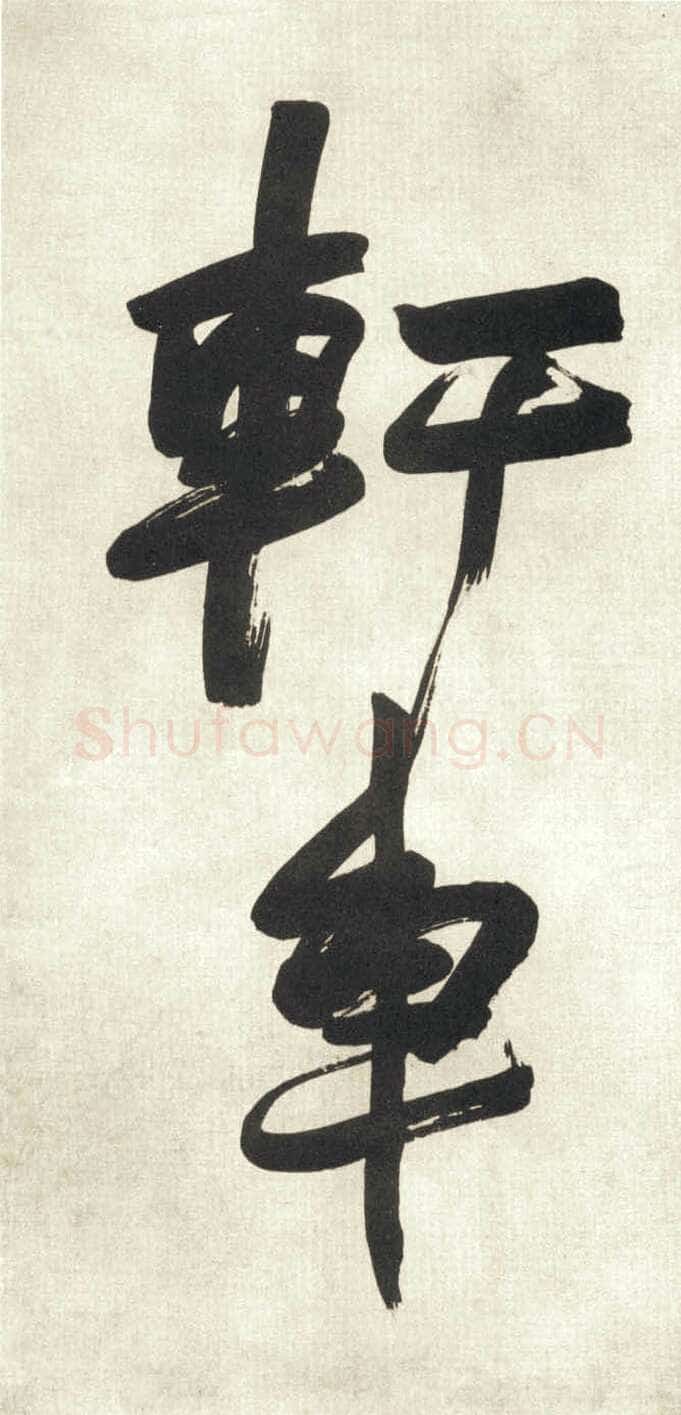 軒車
Shufawang.CN